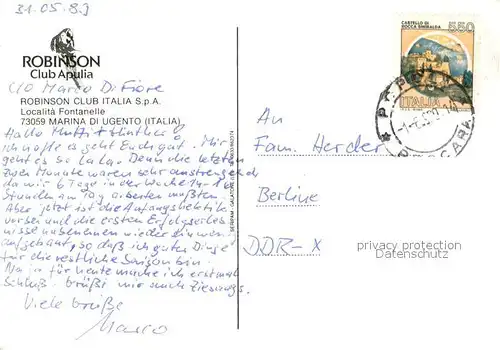 31.05.83
ROBINSON
Club Apulia
c/o Marco Di Fiore
ROBINSON CLUB ITALIA S.p.A.
Località Fontanelle
73059 MARINA DI UGENTO (ITALIA)
Hallo
ich hoffe es geht Euch gut. Mir
geht es so la la. Denn die letzten
zwei Monate waren sehr anstrengend
da wir 6 Tage in der Woche
Stunden am Tag arbeiten mußten.
Aber jetzt ist die Anfangshektik
vorbei und die ersten Erfolgserleb
nisse
aufgebaut, so daß ich guten Dinge
für die restliche Saison bin.
Na ja für heute mache ich erstmal
Schluß. Grüßt mir
Viele Grüße
Marco
CASTELLO DI
ROCCA SINIBALDA
550
ITALIA
PESCARA
An
Fam. Herder
Berline
DDR-X
privacy protection
Datenschutz